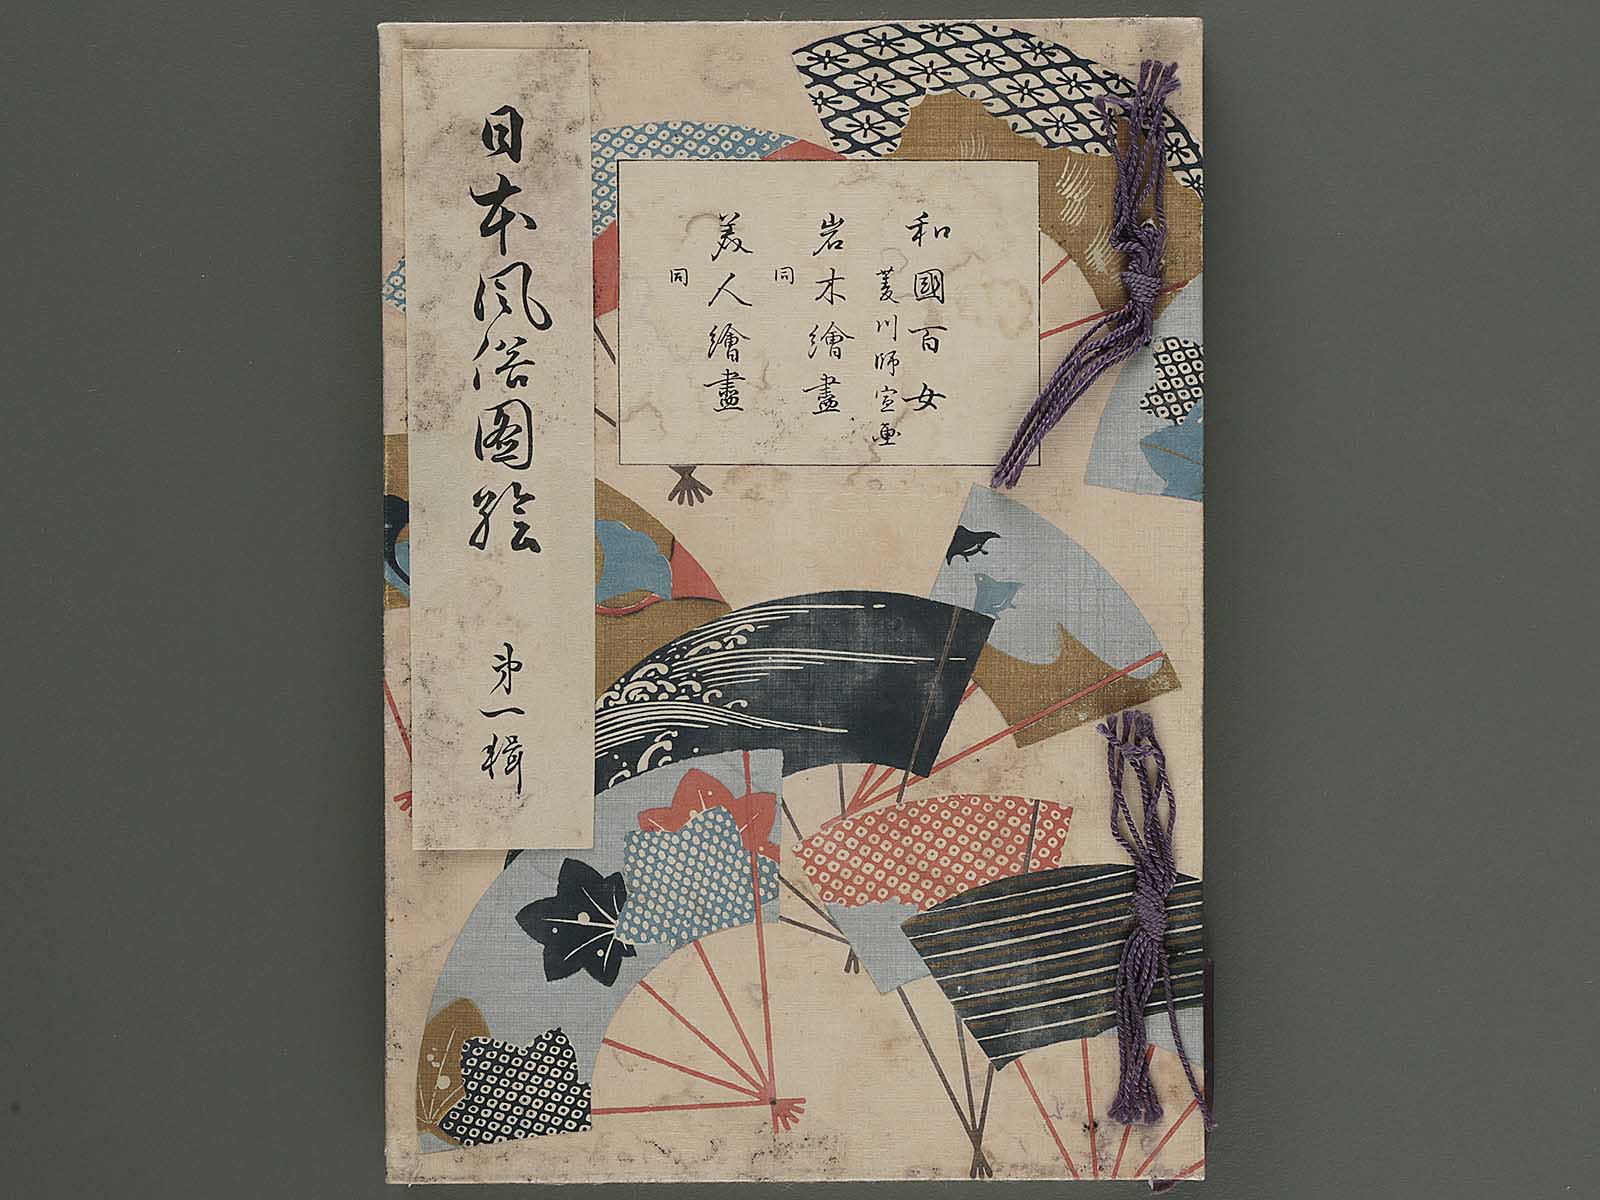 日本风俗图绘 第一輯
和國百女
菱川師宣画
岩木繪畫
同
美人繪畫
同